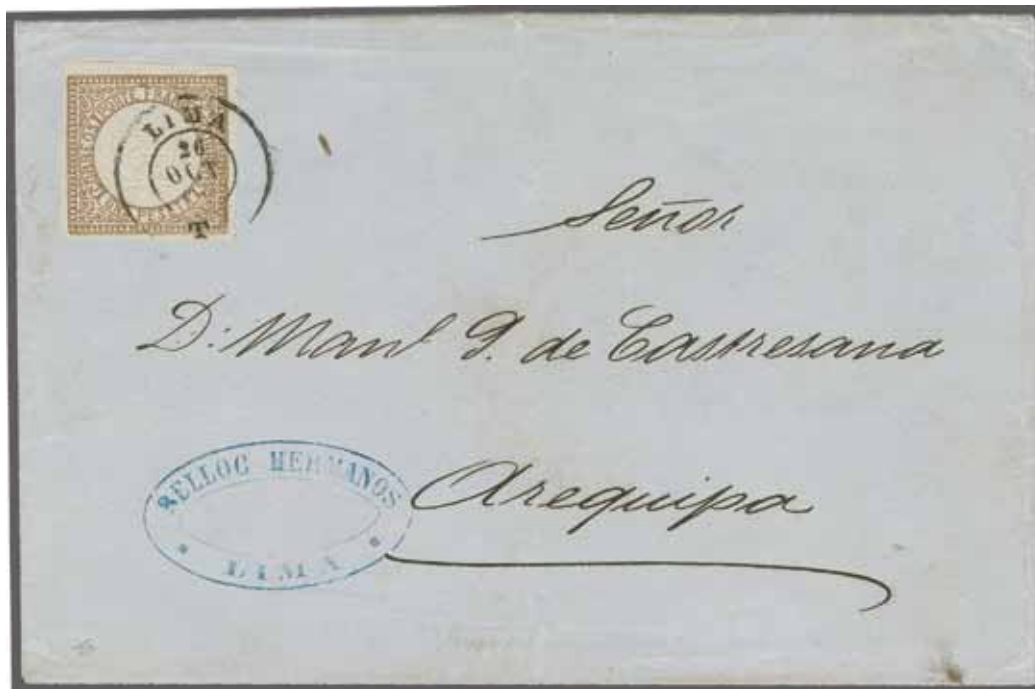 PORTE FRANCO
LIMA
26
OCT
T
Señor
D: Manl G. de Castresana
BELLOC HERMANOS
LIMA
Arequipa